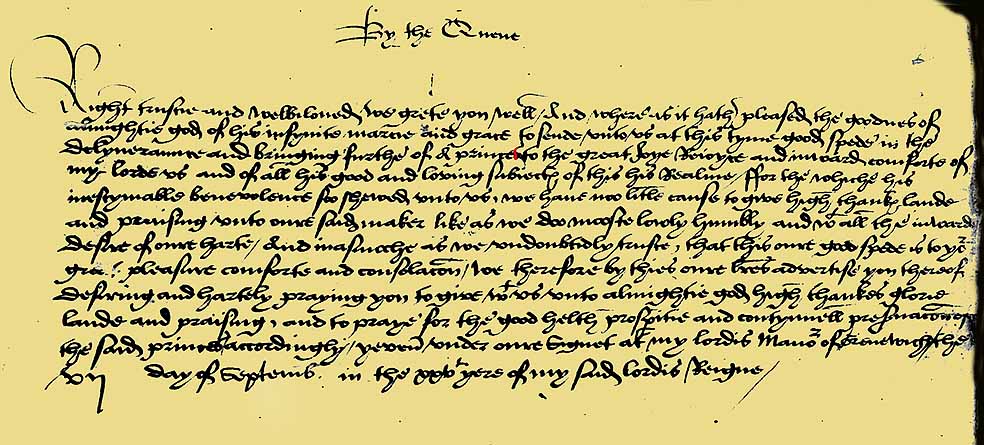 By the Quene
Right trustie and welbiloued, we grete you well, And where as it hath pleased the goodnes of
almightie god, of his infynite marcie and grace to sende vnto vs at this tyme good spede in the
delyueraunce and bringing furthe of a princes to the great Joye Reioyce and inward comforte of
my lorde vs and of all his good and loving subiectes of this his Realme, ffor the whiche his
inestymable beneuolence soo shewed vnto vs, we haue noo litle cause to give high thankes laude
and praising vnto oure said maker like as we doo mooste lowly humbly and wt all the inward
desire of oure harte, And inasmuche as we vndoubtidly truste, that this oure good spede is to yor
great pleasure comforte and consolacon, we therefore by thies oure lres advertise you thereof
desiring and hartely praying you to give wt vs vnto almightie god, high thankes glorie
laude and praising, and to praye for the good helth prosperitie and contynuell preseruacion of
the said princes accordingly, yeven vnder oure Signet at my lordis Manor of Grenewiche the
vij day of Septemb. in the xxvth yere of my said lordis Reigne,